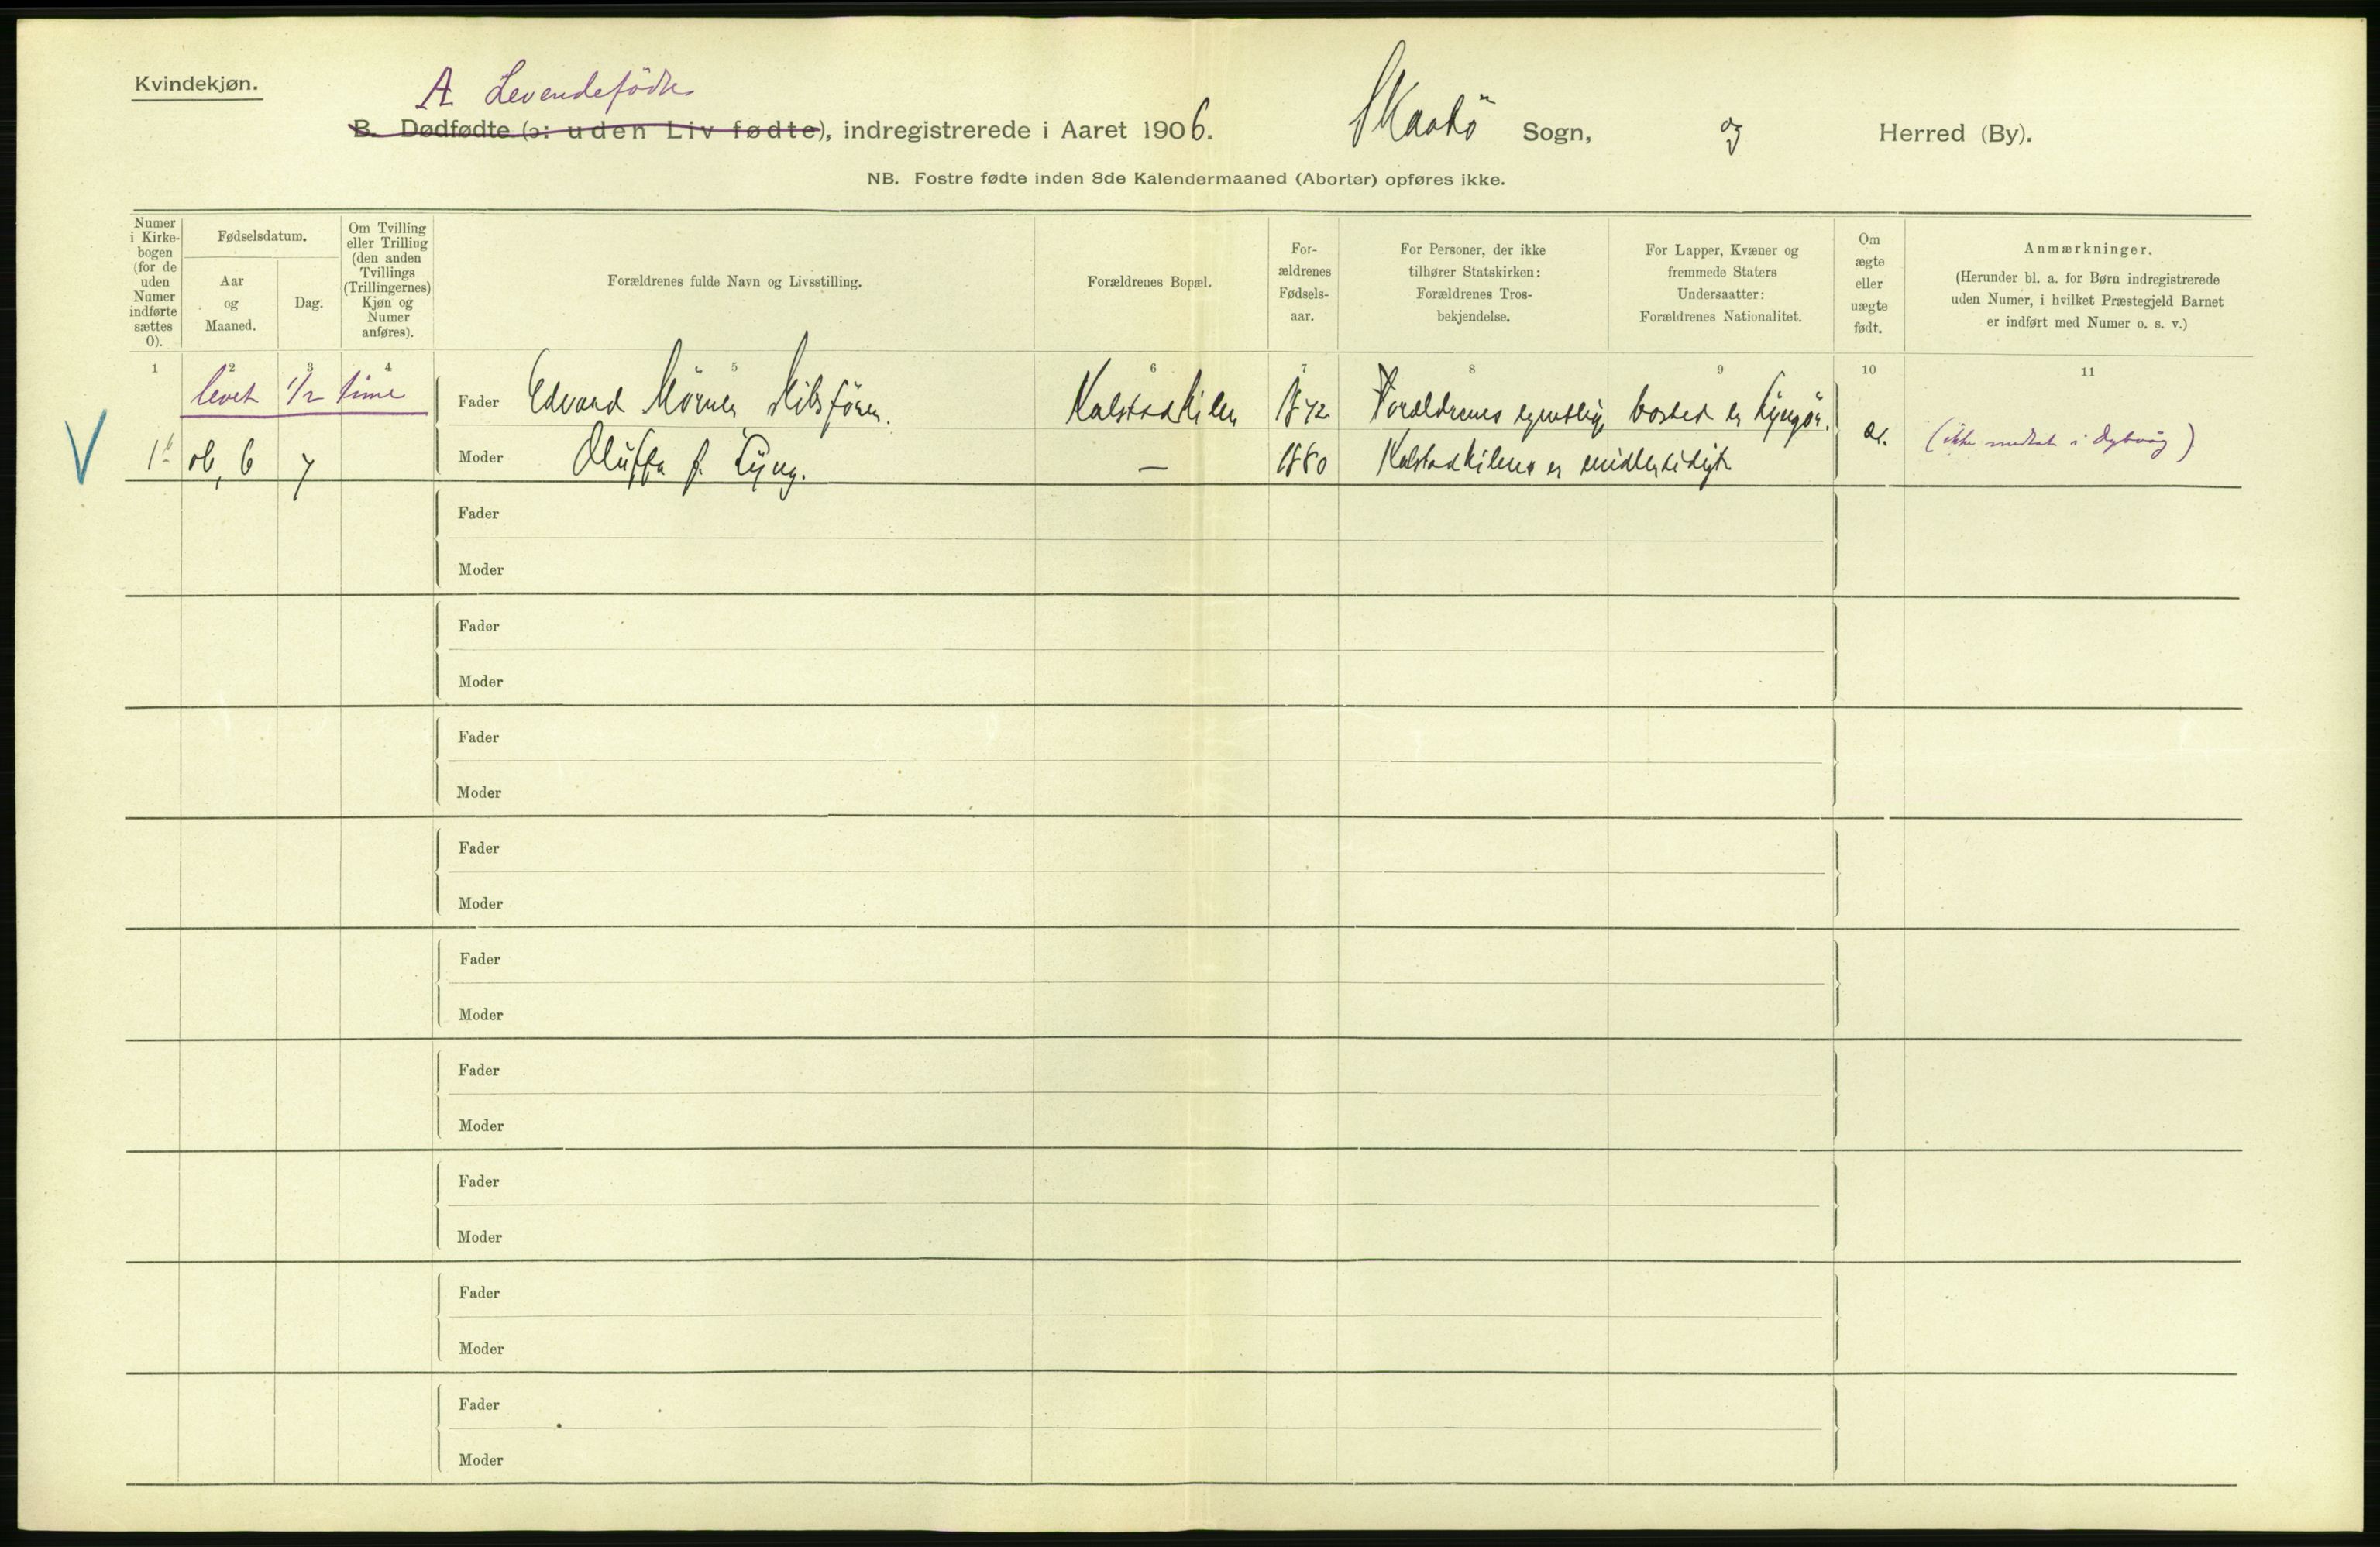 Kvindekjøn.
A. Levendefødte
B. Dødfødte (ɔ: uden Liv fødte), indregistrerede i Aaret 1906. Skaatö Sogn, og Herred (By).
NB. Fostre fødte inden 8de Kalendermaaned (Aborter) opføres ikke.
Numer i Kirkebogen (for de uden Numer indførte sættes 0).
Fødselsdatum.
Aar og Maaned.
Dag.
Om Tvilling eller Trilling (den anden Tvillings (Trillingernes) Kjøn og Numer anføres).
Forældrenes fulde Navn og Livsstilling.
Forældrenes Bopæl.
Forældrenes Fødselsaar.
For Personer, der ikke tilhører Statskirken: Forældrenes Trosbekjendelse.
For Lapper, Kvæner og fremmede Staters Undersaatter: Forældrenes Nationalitet.
Om ægte eller uægte født.
Anmærkninger.
(Herunder bl. a. for Børn indregistrerede uden Numer, i hvilket Præstegjeld Barnet er indført med Numer o. s. v.)
1 2 3 4 5 6 7 8 9 10 11
levet 1/2 time
Fader Edvard 1872 Forældrenes egentlige bosted er Lyngör.
V 06, 6 7 Moder Oluffa f. Lyng. — 1880 er midlertidigt æ. (ikke medtat i Dybvåg)
Fader
Moder
Fader
Moder
Fader
Moder
Fader
Moder
Fader
Moder
Fader
Moder
Fader
Moder
Fader
Moder
Fader
Moder